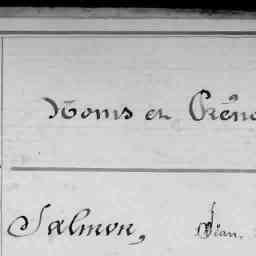 Noms et Préno
Salmon, Jean.